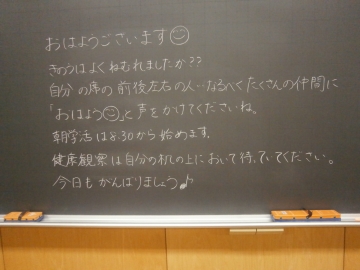 おはようございます☺
きのうはよくねむれましたか??
自分の席の前後左右の人…なるべくたくさんの仲間に
「おはよう☺」と声をかけてくださいね。
朝学活は8:30から始めます。
健康観察は自分の机の上において待っていてください。
今日もがんばりましょう♪